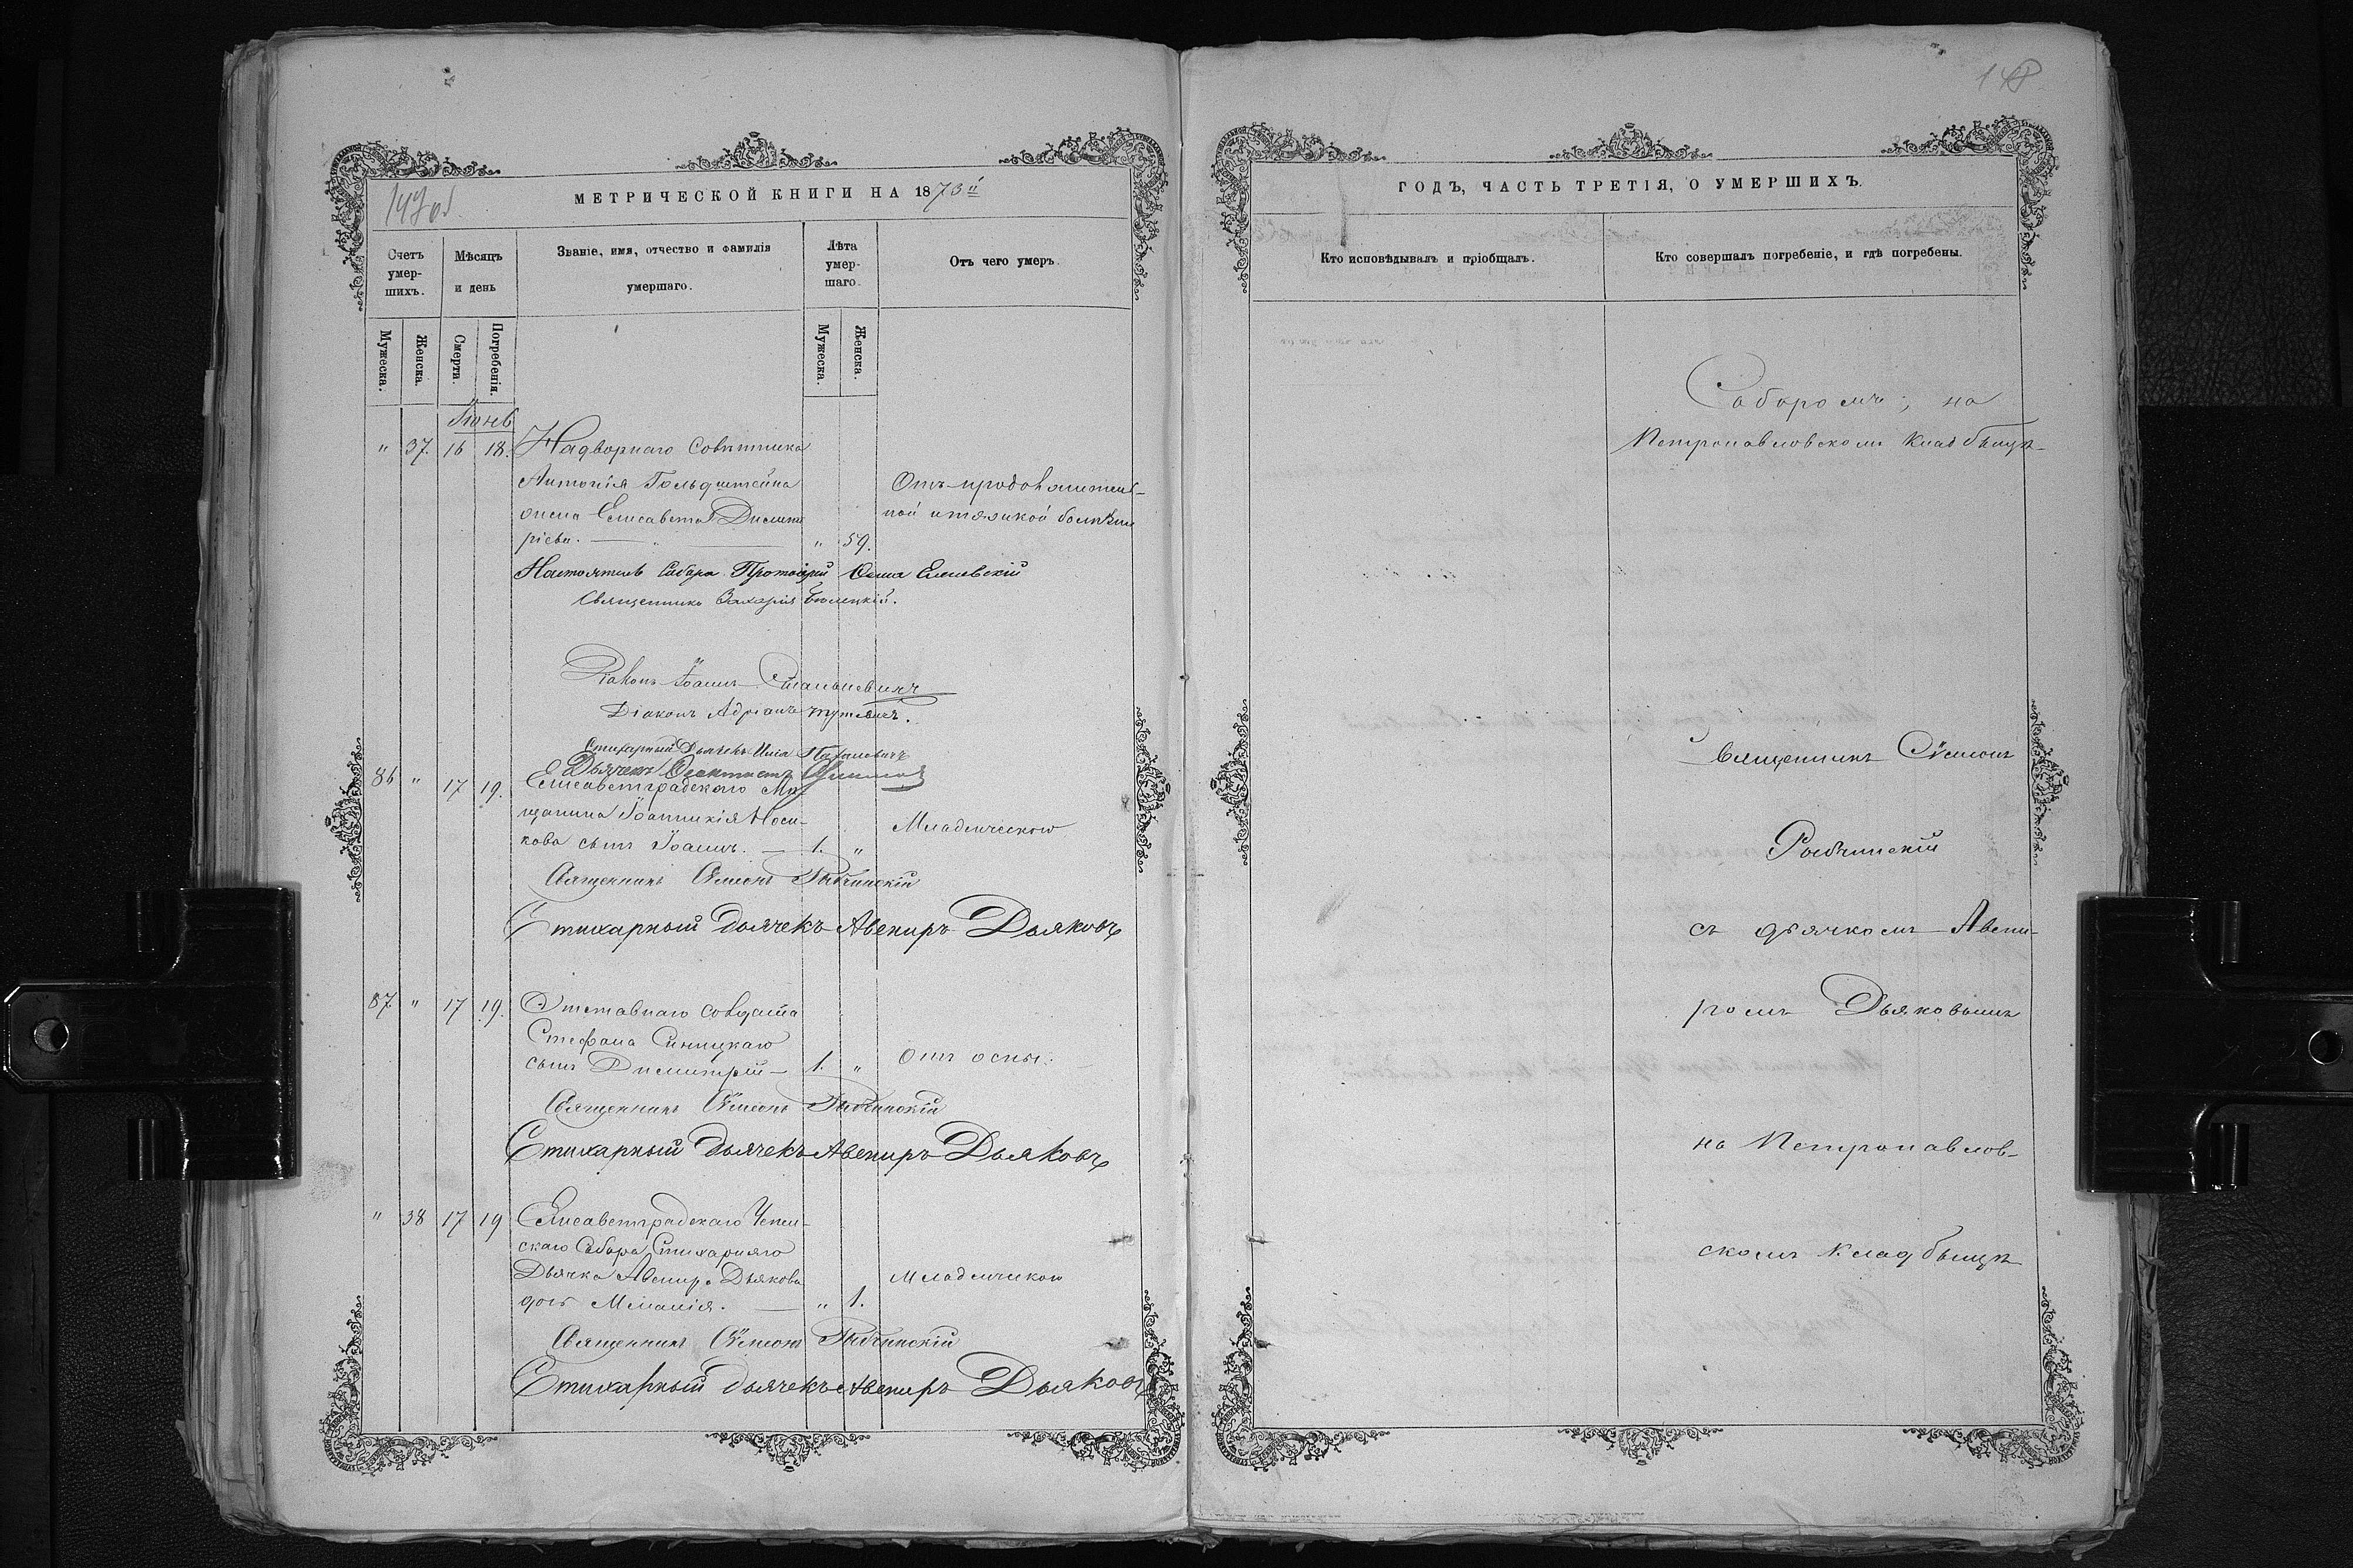 МЕТРИЧЕСКОЙ КНИГИ НА 1873й
Счетъ умер-шихъ.
Мѣсяцъ и день
Званіе, имя, отчество и фамилія умершаго.
Лѣта умер-шаго.
Отъ чего умеръ.
Мужеска.
Женска.
Смерти.
Погребенія.
Мужеска.
Женска.
Іюнь
" 37. 16 18. Надворнаго Совѣтника
Антонія Гольдштейна
жена Елисавета Димит
ріева. " 59.
Отъ продолжитель-
ной и тяжкой болѣзни
Настоятель Собора Протоіерей
Священникъ Захарія
Діаконъ Іоаннъ
Діаконъ Адріанъ
Стихарный Дьячекъ Илія
Дьячекъ
86 " 17 19. Елисаветградскаго Мѣ
щанина Іоанникія Носи-
кова сынъ Іоаннъ. 1. "
Младенческою
Священникъ Сѵмеонъ Рыбчинскій
Стихарный дьячекъ Авениръ Дьяковъ
87. " 17 19. Отставнаго солдата
Стефана Синицкаго
сынъ Димитрій 1. " Отъ оспы.
Священникъ Сѵмеонъ Рыбчинскій
Стихарный дьячекъ Авениръ Дьяковъ
" 38 17 19 Елисаветградскаго Успен-
скаго Собора Стихарнаго
Дьячка Авенира Дьякова
дочь Меланія. " 1.
Младенческою
Священникъ Сѵмеонъ Рыбчинскій
Стихарный дьячекъ Авениръ Дьяковъ
ГОДЪ, ЧАСТЬ ТРЕТІЯ, О УМЕРШИХЪ.
Кто исповѣдывалъ и пріобщалъ.
Кто совершалъ погребеніе, и гдѣ погребены.
Соборомъ, на
Петропавловскомъ кладбищѣ
Священникъ Сѵмеонъ
Рыбчинскій
съ дьячкомъ Авени-
ромъ Дьяковымъ
на Петропавлов-
скомъ кладбищѣ